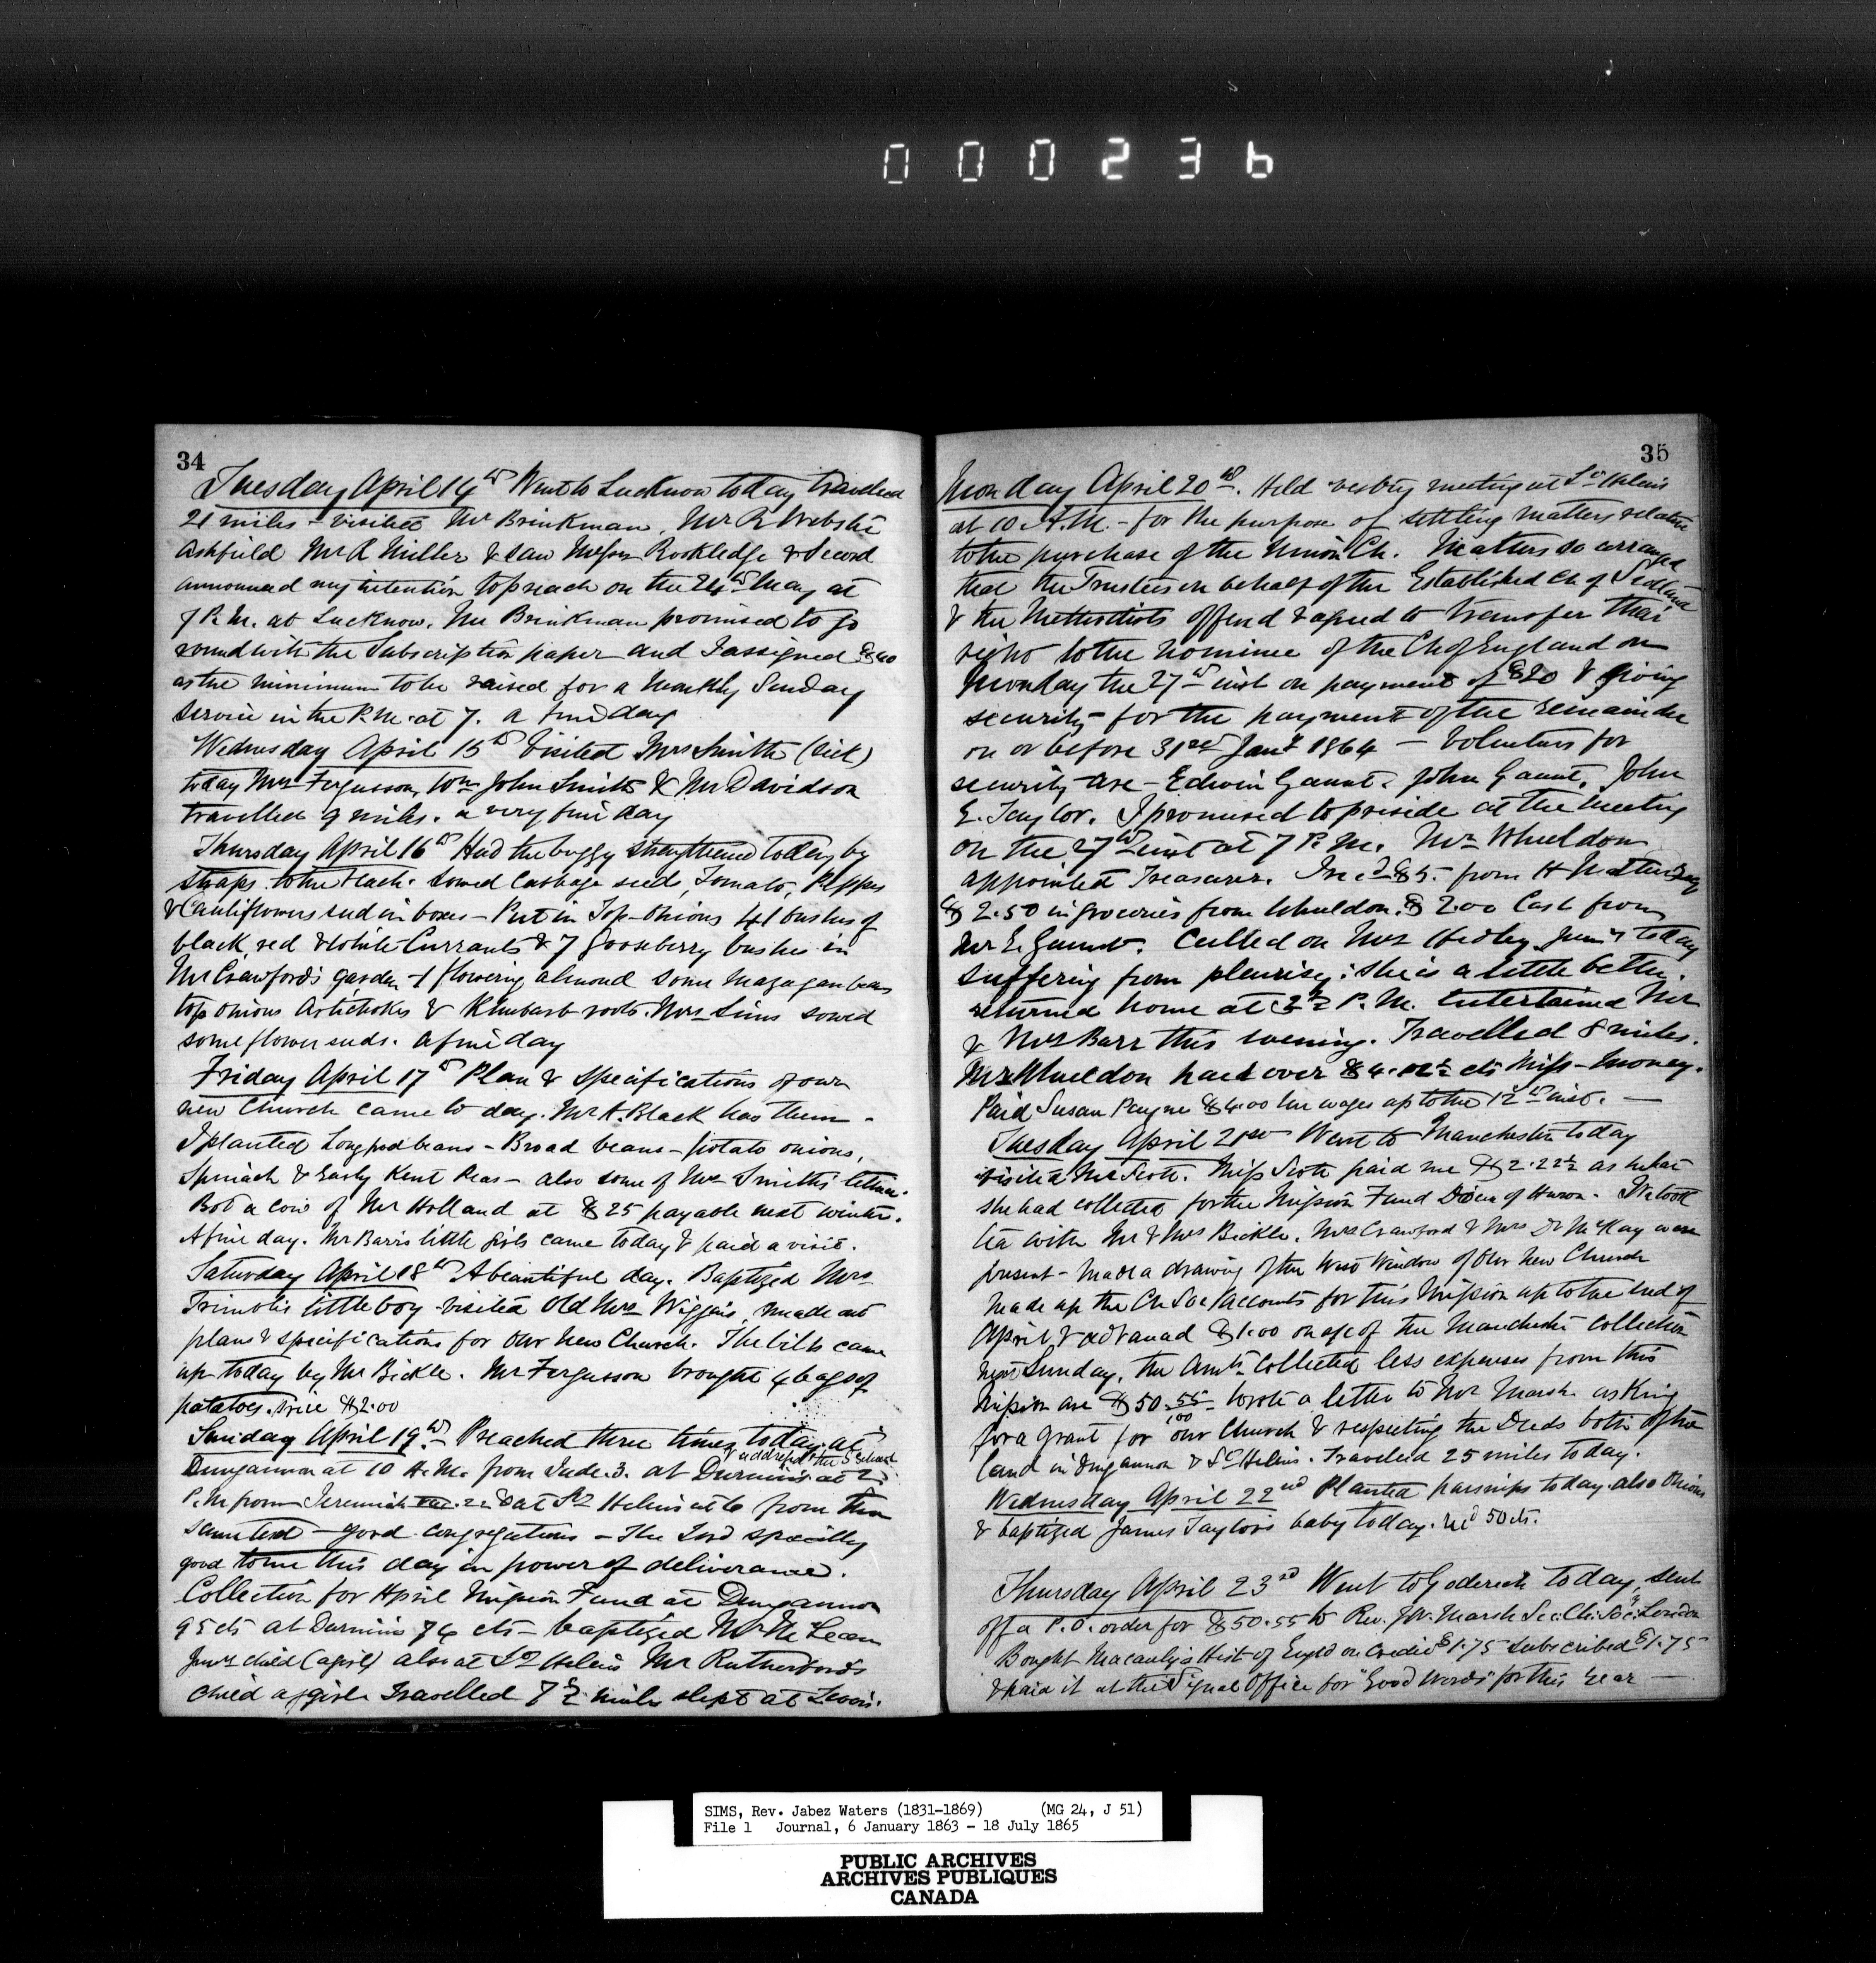 000236
34
Tuesday April 14th Went to Lucknow today travelled
21 miles - visited Mr Brinkman, Mr R Webster
Ashfield Mr R Miller & saw Messrs Rookledge & Secord
announced my intention to preach on the 24th May at
7 P.M. at Lucknow. Mr Brinkman promised to go
round with the Subscription paper and I assigned $40
as the minimum to be raised for a Monthly Sunday
Service in the P.M. at 7. a fine day
Wednesday April 15th Visited Mrs Smith (sick)
today Mrs Fergusson, Wm John Smith & Mr Davidson
travelled 9 miles. a very fine day
Thursday April 16th Had the buggy strengthened today by
straps to the . Sowed Cabbage seed, Tomato, Pepper
& Cauliflower seed in boxes - Put in Top-Onions 41 bushes of
black, red & White Currants & 7 Gooseberry bushes in
Mr Crawford's garden 1 flowering almond some Mazagan beans
top onions Artichokes & Rhubarb roots. Mrs Sims sowed
some flower seeds. a fine day
Friday April 17th Plan & Specifications of our
new Church came to day. Mr A. Black has them -
I planted Longpod beans - Broad beans - potato onions,
Spinach & Early Kent Peas - also some of Mrs Smith's lettuce.
Bot a cow of Mr Holland at $25 payable next winter.
A fine day. Mr Barr's little girls came today & paid a visit.
Saturday April 18th A beautiful day. Baptized Mrs
Trimble's little boy visited Old Mrs Wiggins, made out
plans & specifications for our New Church. The bills came
up today by Mr Bickle. Mr Fergusson brought 4 bags of
potatoes. Price $2.00
Sunday April 19th - Preached three times today. at
& addressed the S School
Dungannon at 10 A.M. from Jude. 3. at Durnin's at 2
P.M from Jeremiah 22.8 at St Helens at 6 from the
same text - good congregations - The Lord specially
good to me this day in power of deliverance.
Collection for April Mission Fund at Dungannon
95 cts at Durnins 74 cts - baptized Mr McLean
Junrs child (a girl) also at St Helens Mr Rutherford's
child a girl. Travelled 7½ miles slept at
35
Monday April 20th. Held vestry meeting at St Helens
at 10 A.M. - for the purpose of settling matters relative
to the purchase of the Union Ch. Matters so arranged
that the Trustees on behalf of the Established Ch of Scotland
& the Methodists offered & agreed to transfer their
right to the nominee of the Ch of England on
Monday the 27th inst on payment of $20 & giving
security for the payment of the remainder
on or before 31st Jany 1864 - Volunteers for
security are - Edwin Gaunt, John Gaunt, John
E. Taylor. I promised to preside at the meeting
on the 27th inst at 7 P.M. Mr Wheeldon
appointed Treasurer. Recd $5. from H
$2.50 in groceries from Wheeldon. $2.00 Cash from
Mr E. Gaunt. Called on Mrs Hedley Junr today
suffering from pleurisy: she is a little better.
returned home at 3½ P.M. Entertained Mr
& Mrs Barr this evening. Travelled 8 miles.
Mr Wheeldon paid over $4. cts Miss-money.
Paid Susan Payne $4.00 her wages up to the 12th inst. -
Tuesday April 21st Went to Manchester today
visited Mr Scott. Miss Scott paid me $2.22½ as what
she had collected for the Mission Fund Diocese of Huron. We took
tea with Mr & Mrs Bickle. Mrs Crawford & Mrs Dr McKay were
present - Made a drawing of the West Window of Our New Church
Made up the Ch Soc/Accounts for this Mission up to the end of
April & advanced $1.00 on a/c of the Manchester Collection
next Sunday, the Amts Collected less expenses from this
Mission are $50.55/100 - Wrote a letter to Mr Marsh asking
for a grant for our Church & respecting the Deeds both of the
land in Dungannon & St Helens. Travelled 25 miles today.
Wednesday April 22nd Planted parsnips today also Onions
& baptized James Taylor's baby today. recd 50 cts.
Thursday April 23rd Went to Goderich today, sent
off a P.O. order for $50.55 to Rev. J.W. Marsh Sec: Ch: Socy: London
Bought Macaulay's Hist of Engld on Credit $1.75 Subscribed $1.75
& paid it at the Signal Office for "Good Words" for this Year -
SIMS, Rev. Jabez Waters (1831-1869) (MG 24, J 51)
File 1 Journal, 6 January 1863 - 18 July 1865
PUBLIC ARCHIVES
ARCHIVES PUBLIQUES
CANADA